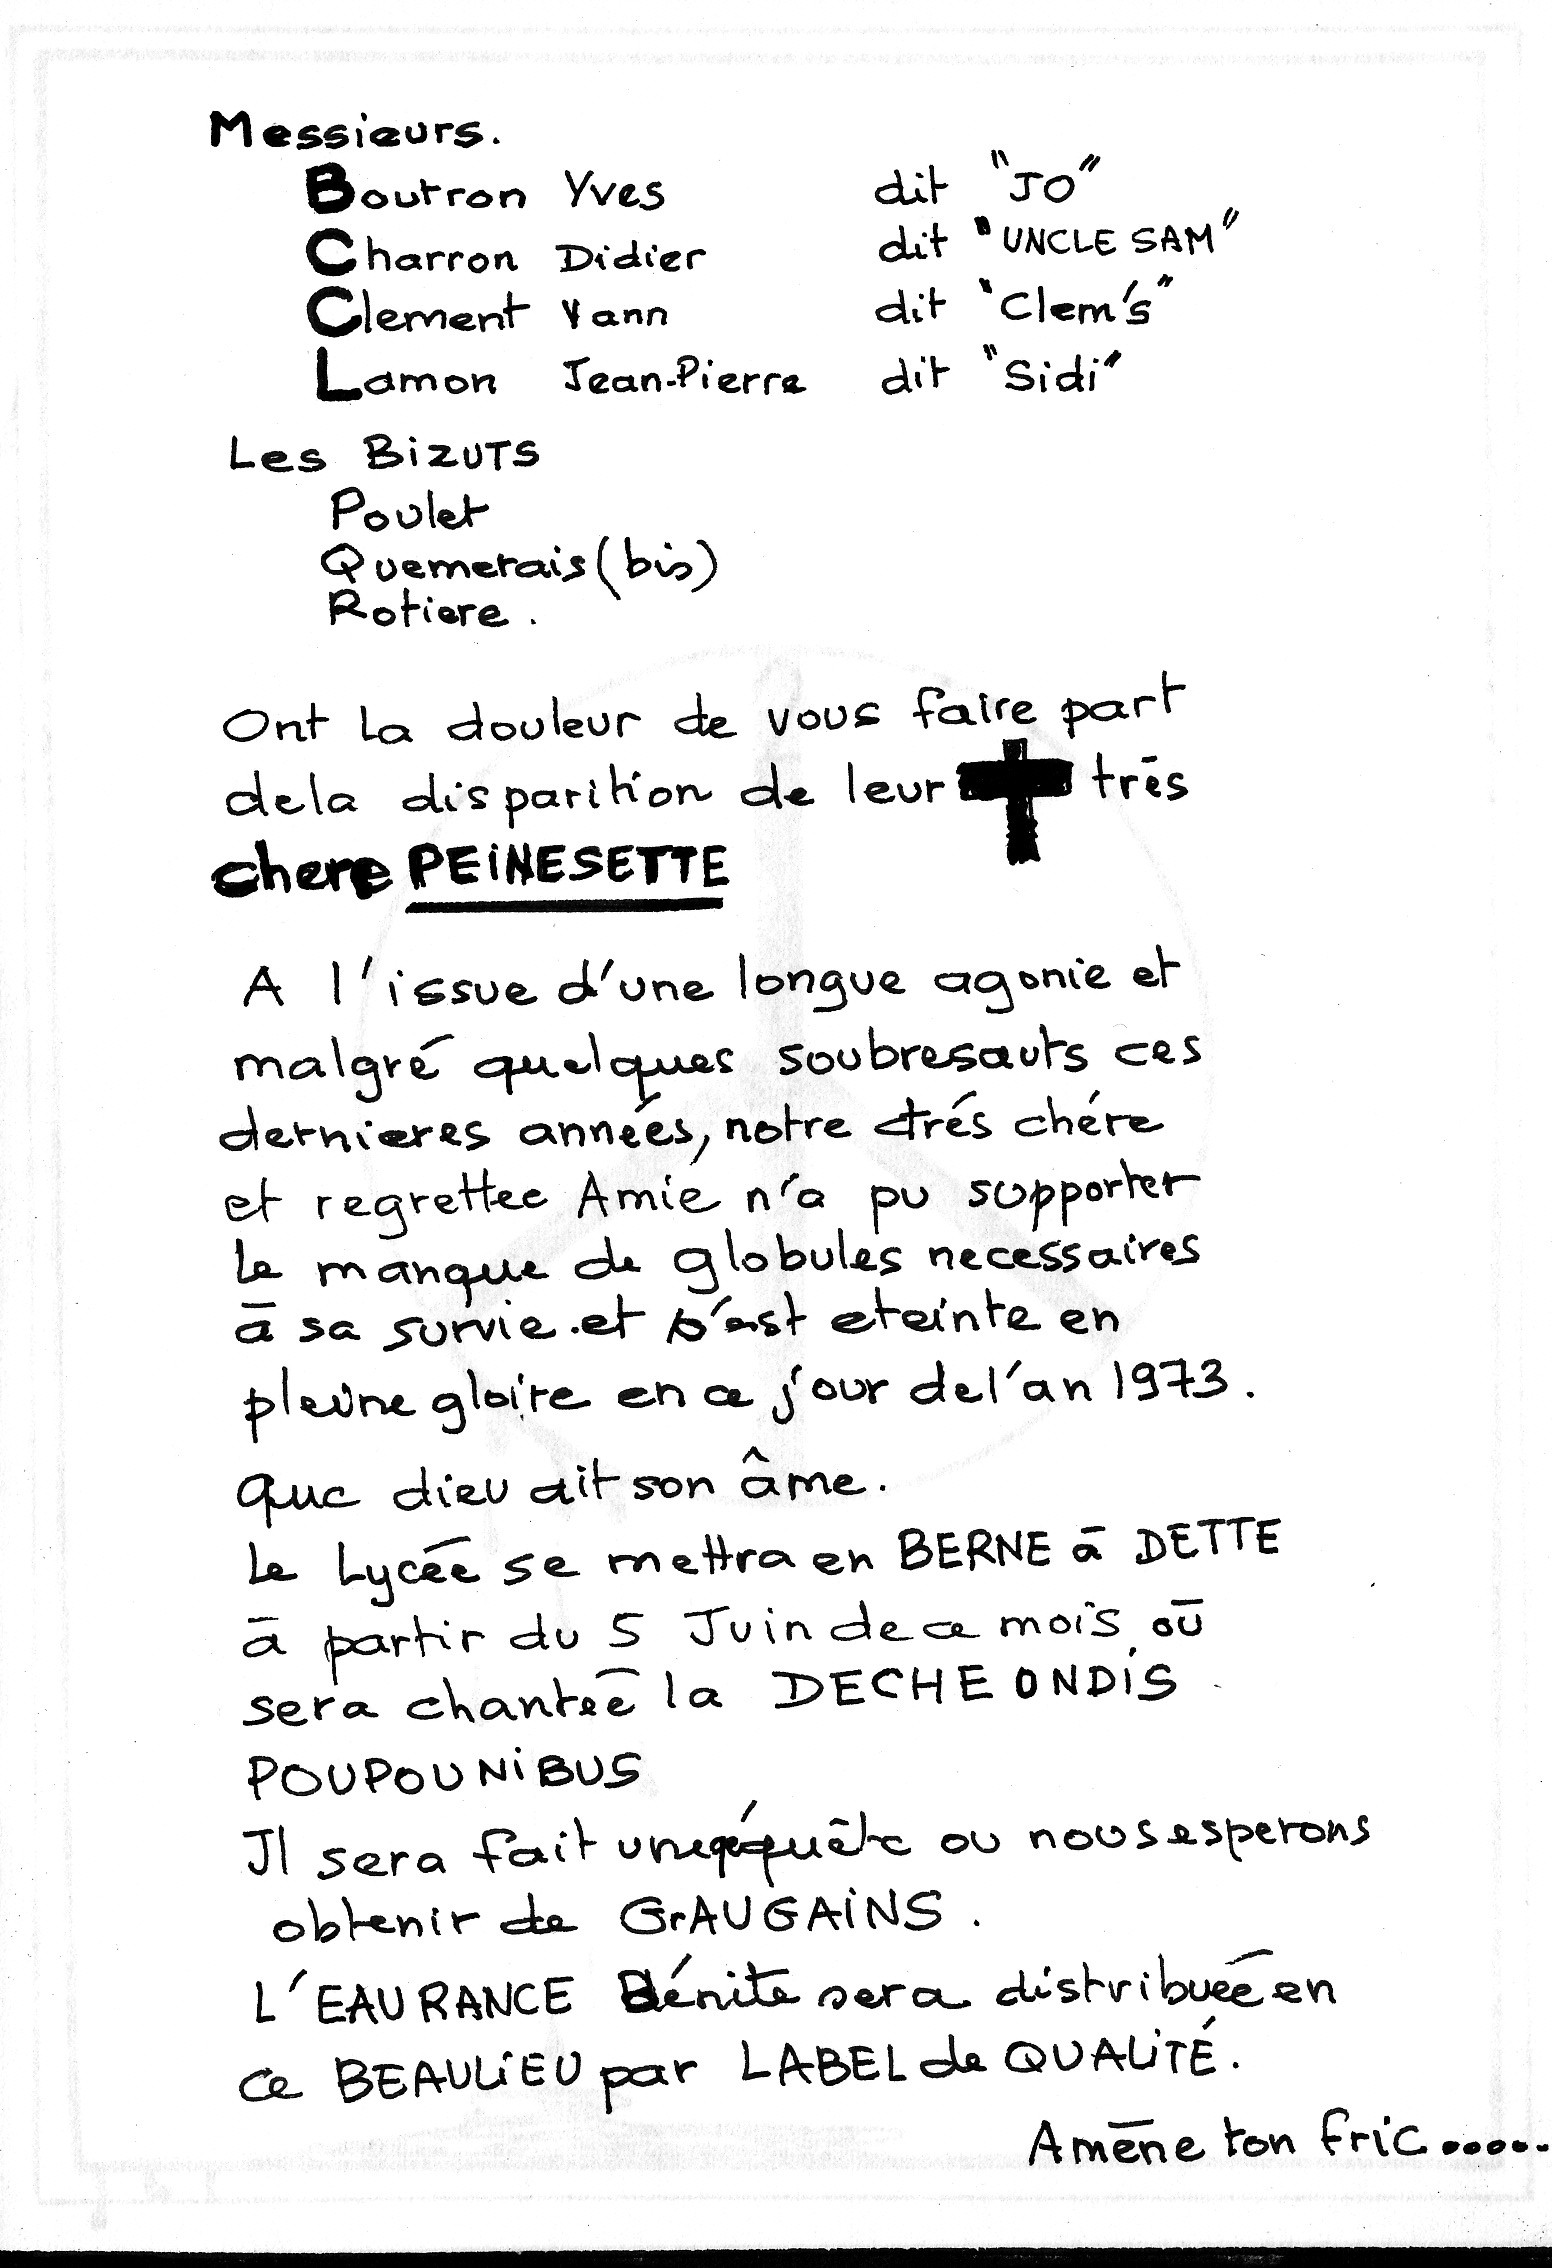 Messieurs.
Boutron Yves dit "JO"
Charron Didier dit "UNCLE SAM"
Clement Yann dit "Clem's"
Lamon Jean-Pierre dit "Sidi"
Les BiZUTS
Poulet
Quemerais (bis)
Rotiere.
Ont la douleur de vous faire part
dela disparition de leur très
chere PEiNESETTE
A l'issue d'une longue agonie et
malgré quelques soubresauts ces
dernieres années, notre trés chére
et regrettee Amie n'a pu supporter
le manque de globules necessaires
à sa survie.et s'est eteinte en
pleine gloire en ce jour del'an 1973.
Que dieu ait son âme.
Le Lycée se mettra en BERNE à DETTE
à partir du 5 Juin de ce mois, où
sera chantée la DECHE ONDiS
POUPOUNiBUS
Il sera fait une quête ou nous esperons
obtenir de GrAUGAiNS.
L'EAURANCE Bénite sera distribuée en
ce BEAULiEU par LABEL de QUALiTÉ.
Amène ton fric.....